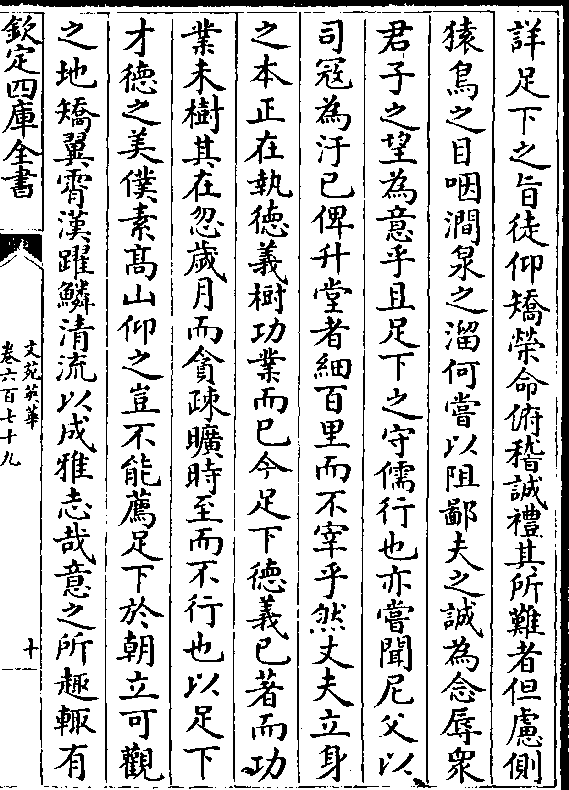 詳足下之旨徒仰矯榮命俯稽誠禮其所難者但慮側
猿鳥之目咽澗泉之溜何嘗以阻鄙夫之誠為念辱衆
君子之望為意乎且足下之守儒行也亦嘗聞尼父以
司冦為汙已俾升堂者細百里而不宰乎然丈夫立身
之本正在執徳義樹功業而已今足下徳義已著而功
業未樹其在忽歲月而貪疎曠時至而不行也以足下
才徳之美僕素髙山仰之豈不能薦足下於朝立可觀
之地矯翼霄漢躍鱗清流以成雅志哉意之所趣輙有
欽定四庫全書
文苑英華
卷六百七十九
十